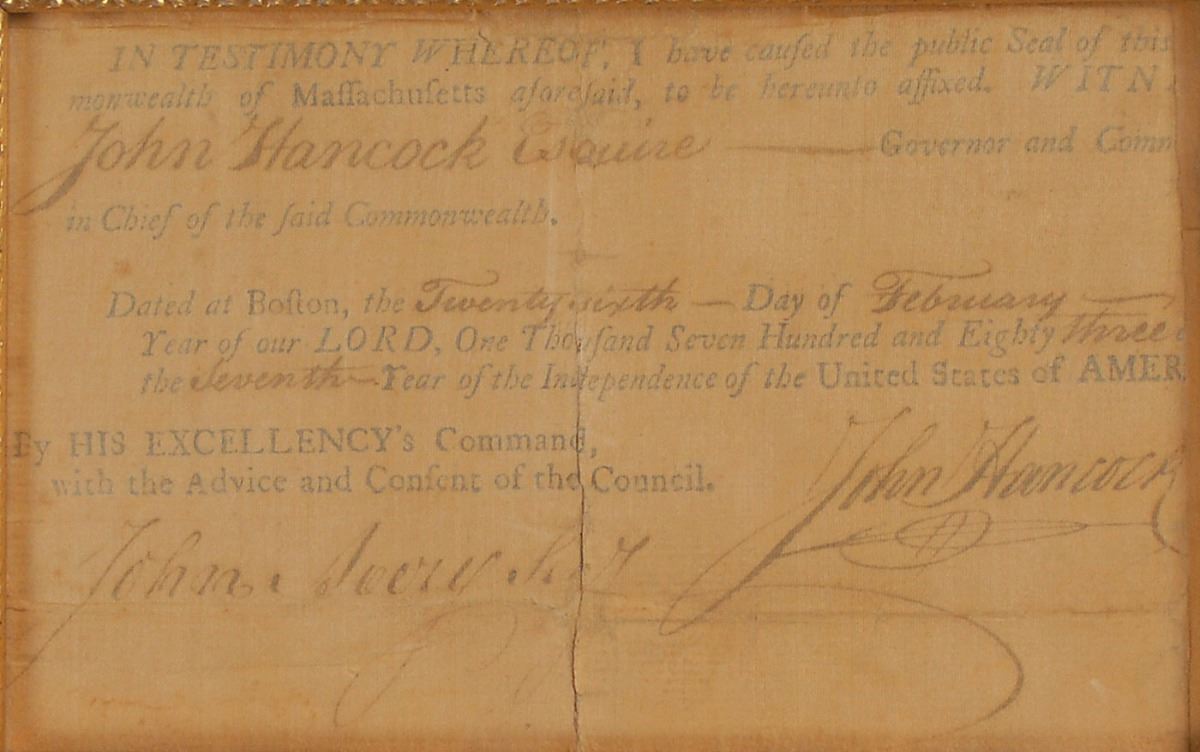 IN TESTIMONY WHEREOF, I have cauſed the public Seal of this
monwealth of Maſſachuſetts aforeſaid, to be hereunto affixed. WITN
John Hancock Esquire — Governor and Comm
in Chief of the ſaid Commonwealth.
Dated at Boſton, the Twenty sixth — Day of February —
Year of our LORD, One Thouſand Seven Hundred and Eighty three
the Seventh — Year of the Independence of the United States of AMER
By HIS EXCELLENCY's Command,
with the Advice and Conſent of the Council.
John Hancock
John Avery